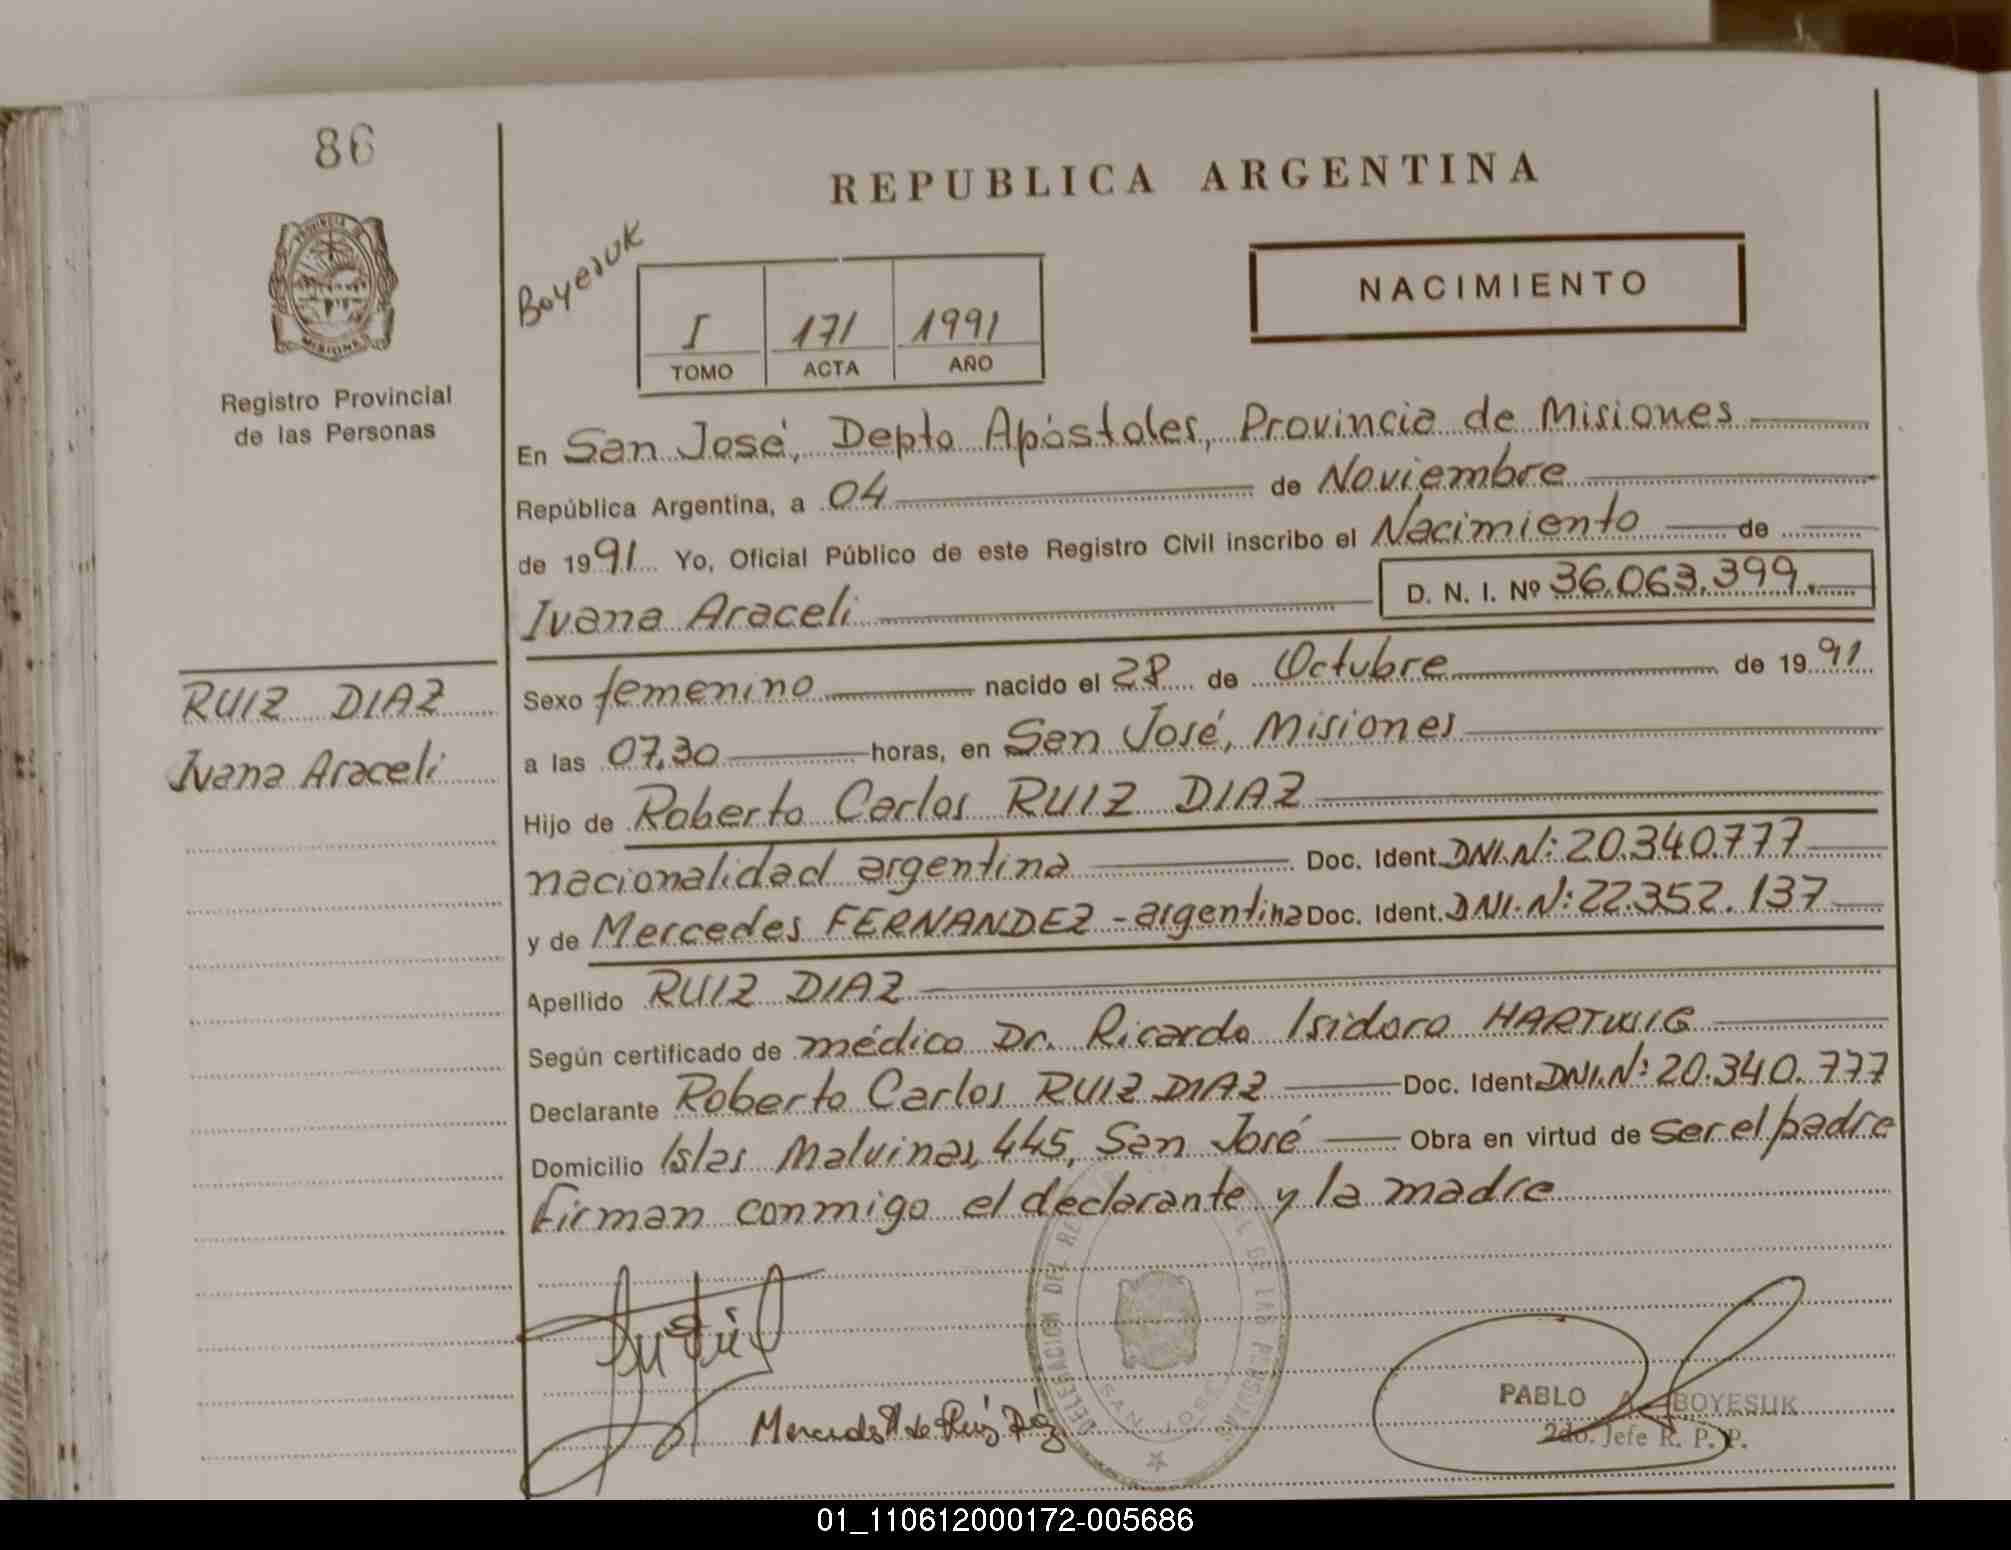 86
REPUBLICA ARGENTINA
PROVINCIA DE
MISIONES
Registro Provincial
de las Personas
Boyesuk
I 171 1991
TOMO ACTA AÑO
NACIMIENTO
En San José, Depto Apóstoles, Provincia de Misiones
República Argentina, a 04 de Noviembre
de 1991 Yo, Oficial Público de este Registro Civil inscribo el Nacimiento de
Ivana Araceli D. N. I. Nº 36.063.399.
RUIZ DIAZ
Ivana Araceli
Sexo femenino nacido el 28 de Octubre de 1991
a las 07,30 horas, en San José, Misiones
Hijo de Roberto Carlos RUIZ DIAZ
nacionalidad argentina Doc. Ident. DNI.Nº: 20.340.777
y de Mercedes FERNANDEZ - argentina Doc. Ident. DNI.Nº: 22.352.137
Apellido RUIZ DIAZ
Según certificado de médico Dr. Ricardo Isidoro HARTWIG
Declarante Roberto Carlos RUIZ DIAZ Doc. Ident. DNI.Nº: 20.340.777
Domicilio Islas Malvinas, 445, San José Obra en virtud de ser el padre
Firman conmigo el declarante y la madre
DELEGACION DEL DE LAS PERSONAS
SAN JOSE
Mercedes de Ruiz Díaz
PABLO A. BOYESUK
2do. Jefe R. P. P.
01_110612000172-005686